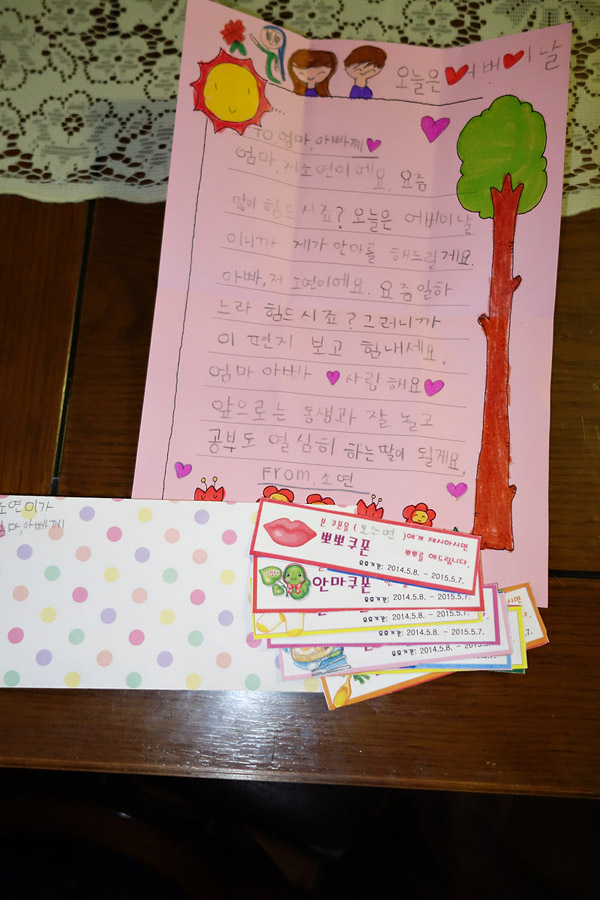 오늘은 어버이날
To 엄마, 아빠께
엄마, 저 소연이에요. 요즘
많이 힘드시죠? 오늘은 어버이날
이니까 제가 안마를 해드릴게요.
아빠, 저 소연이에요. 요즘 일하
느라 힘드시죠? 그러니까
이 편지 보고 힘내세요.
엄마 아빠 사랑해요
앞으로는 동생과 잘 놀고
공부도 열심히 하는 딸이 될게요.
From. 소연
소연이가
엄마, 아빠께
본 쿠폰을 ( 소연 )에게 제시하시면
뽀뽀쿠폰
뽀뽀를 해드립니다.
유효기간: 2014.5.8. - 2015.5.7.
안마쿠폰
유효기간: 2014.5.8. - 2015.5.7.
유효기간: 2014.5.8. - 2015.5.7.
유효기간: 2014.5.8. - 2015.5.7.